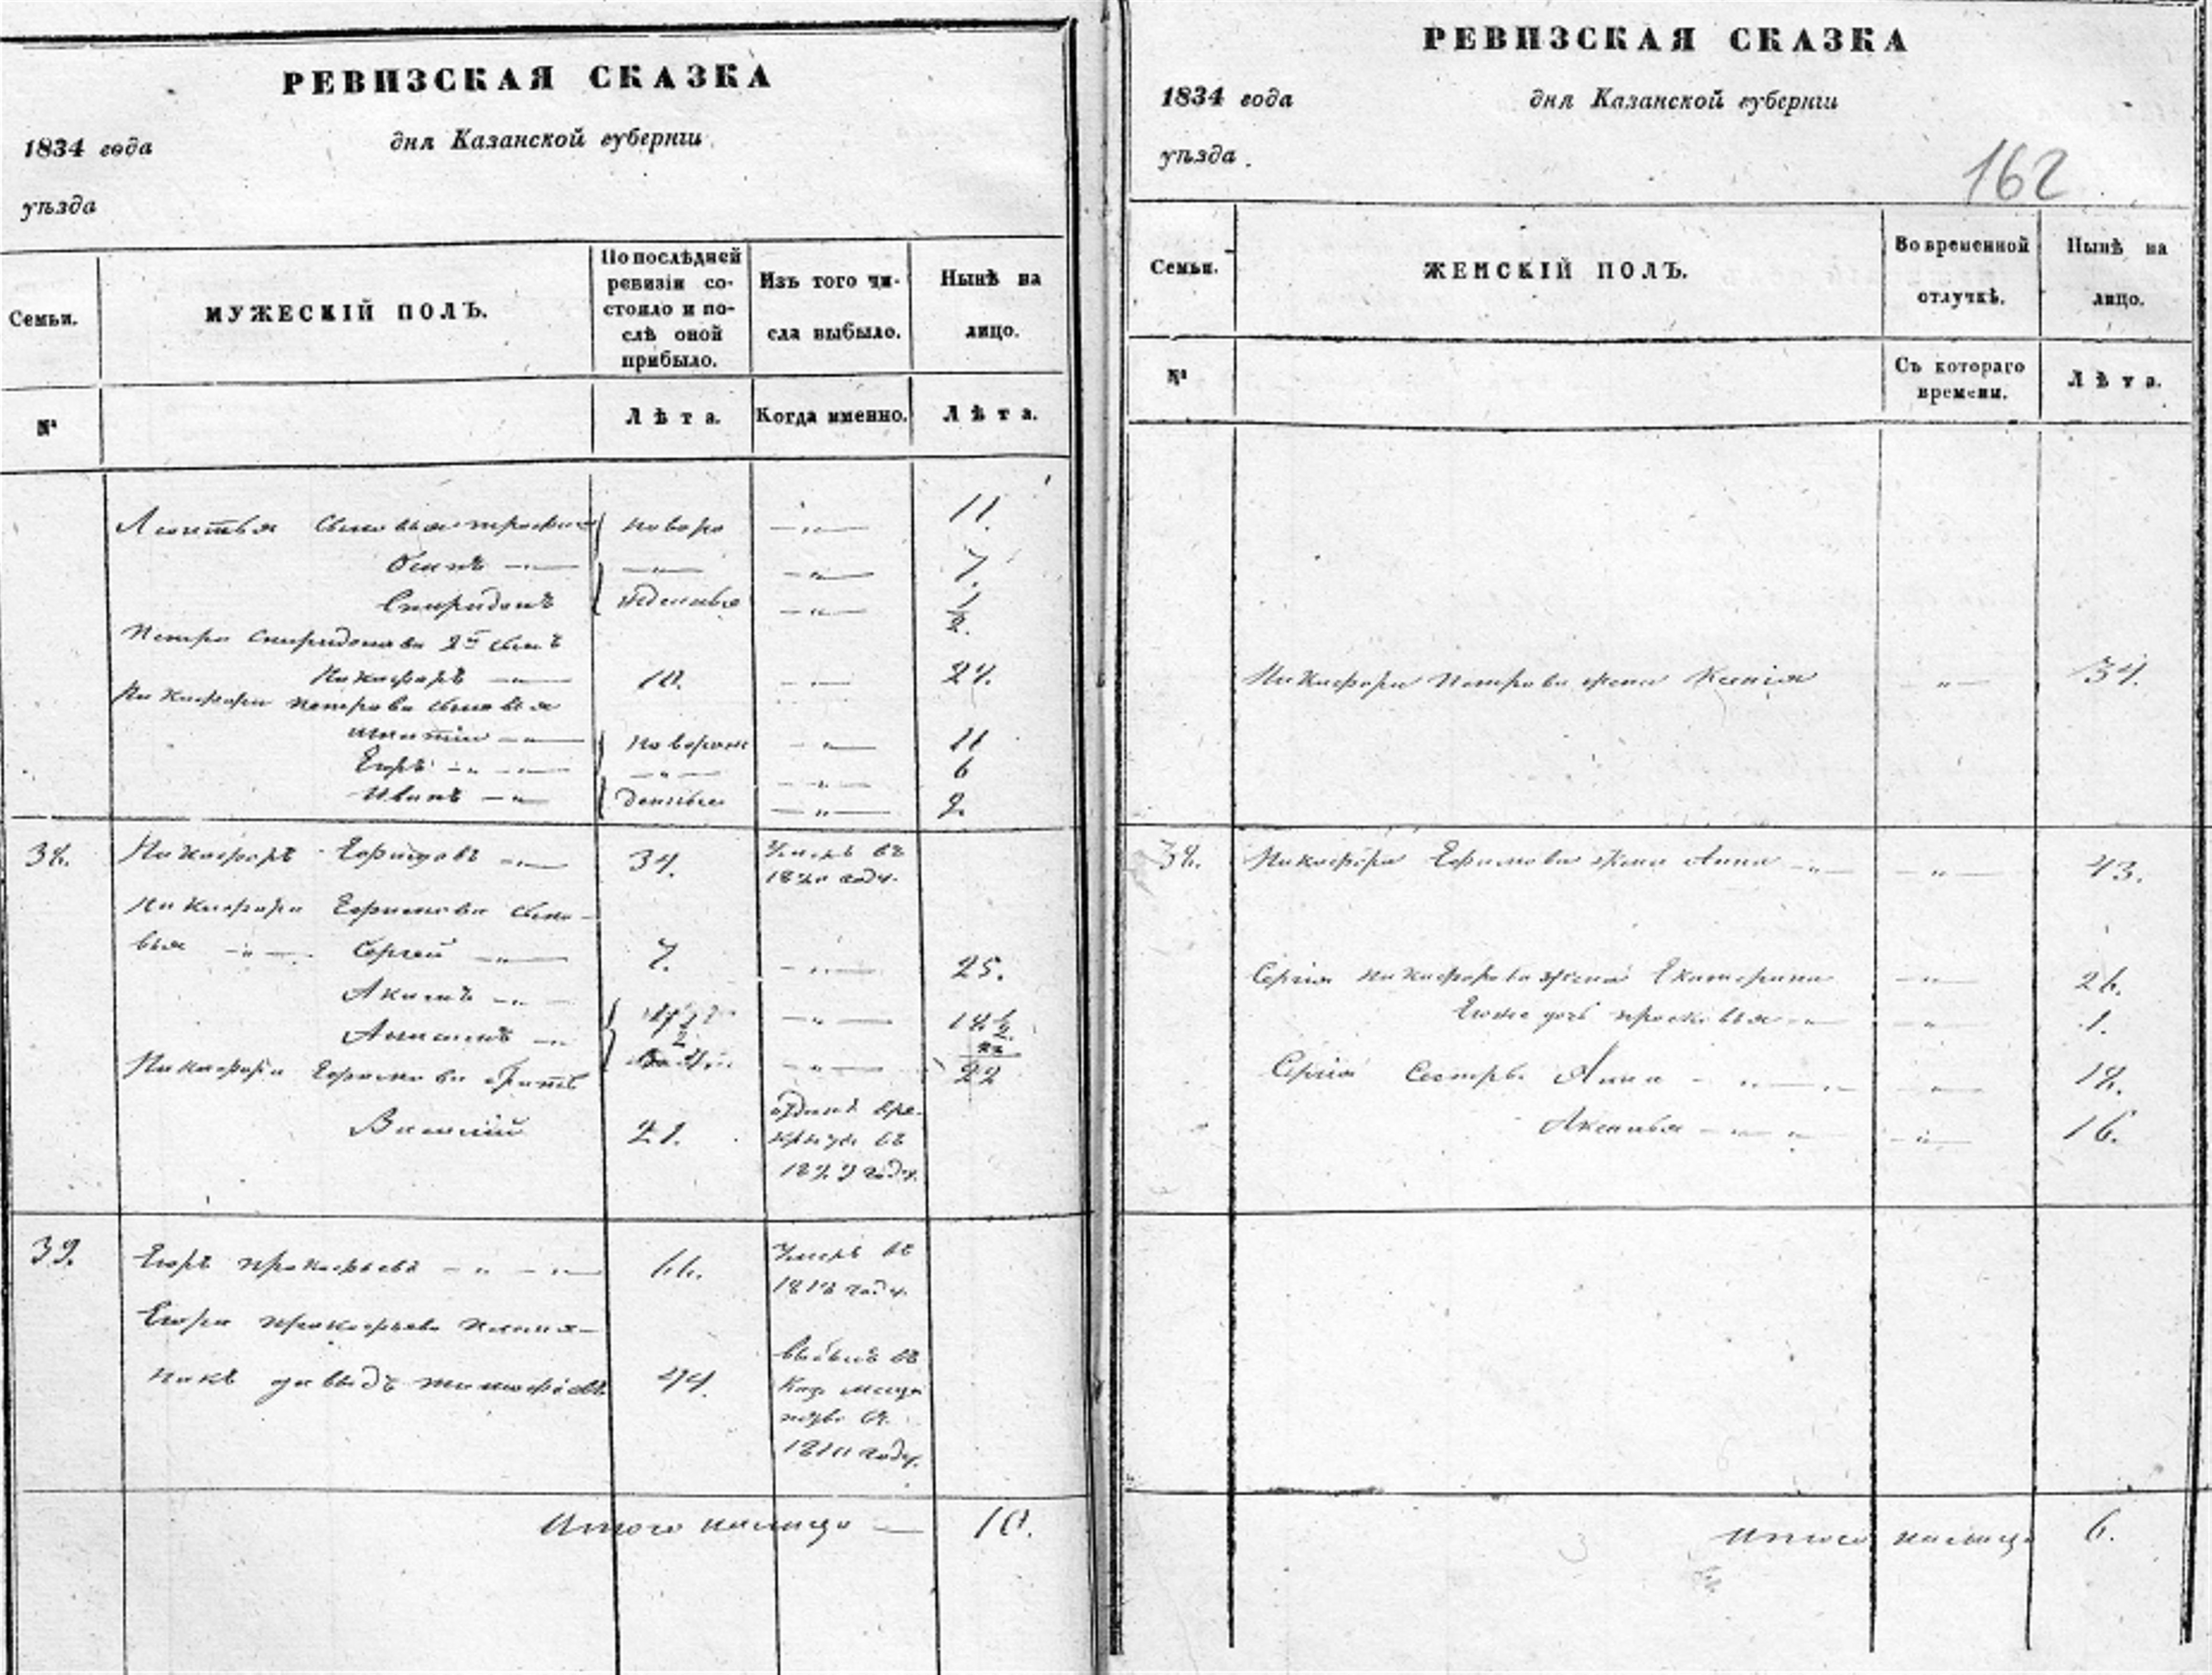 РЕВИЗСКАЯ СКАЗКА
1834 года
дня Казанской губерніи
уѣзда
Семьи.
МУЖЕСКІЙ ПОЛЪ.
По послѣдней
ревизіи со-
стояло и по-
слѣ оной
прибыло.
Изъ того чи-
сла выбыло.
Нынѣ на
лицо.
№
Лѣта.
Когда именно.
Лѣта.
Леонтья сыновья трофим новоро — " — 11.
Осипъ — " — — " — — " — 7.
Спиридонъ жденные — " — 1/2.
Петра Спиридонова 2й сынъ
Никифоръ — " — 10. — " — 24.
Никифора Петрова сыновья
— " — новорож — " — 11
Егоръ — " — — " — — " — 6
Иванъ — " — денные — " — 2.
38. Никифоръ Ефимовъ — " — 34. Умеръ въ
году.
Никифора Ефимова сыно-
вья — " — Сергей — " — 7. — " — 25.
Акимъ — " — — " — 18 1/2.
— " — — " — 22
Никифора Ефимова братъ
Василий 21. въ
году.
39. Егоръ Прокофьевъ — " — " — 66. Умеръ въ
1818 году.
Егора Прокофьева племя-
никъ Давыдъ Тимофеевъ 44. выбылъ въ
году.
Итого налицо — 10.
РЕВИЗСКАЯ СКАЗКА
1834 года
дня Казанской губерніи
уѣзда
162
Семьи.
ЖЕНСКІЙ ПОЛЪ.
Во временной
отлучкѣ.
Нынѣ на
лицо.
№
Съ котораго
времени.
Лѣта.
Никифора Петрова жена Ксенія — " — 34.
38. Никифора Ефимова жена Анна — " — — " — 43.
Сергія Никифорова жена Екатерина — " — 26.
Ево же дочь Прасковья — " — — " — 1.
Сергія сестры Анна — " — — " — 18.
Аксинья — " — " — — " — 16.
Итого налицо 6.